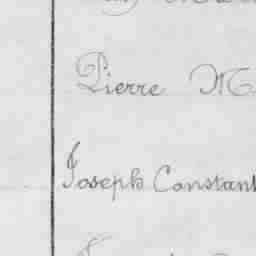 Pierre M
Joseph Constant